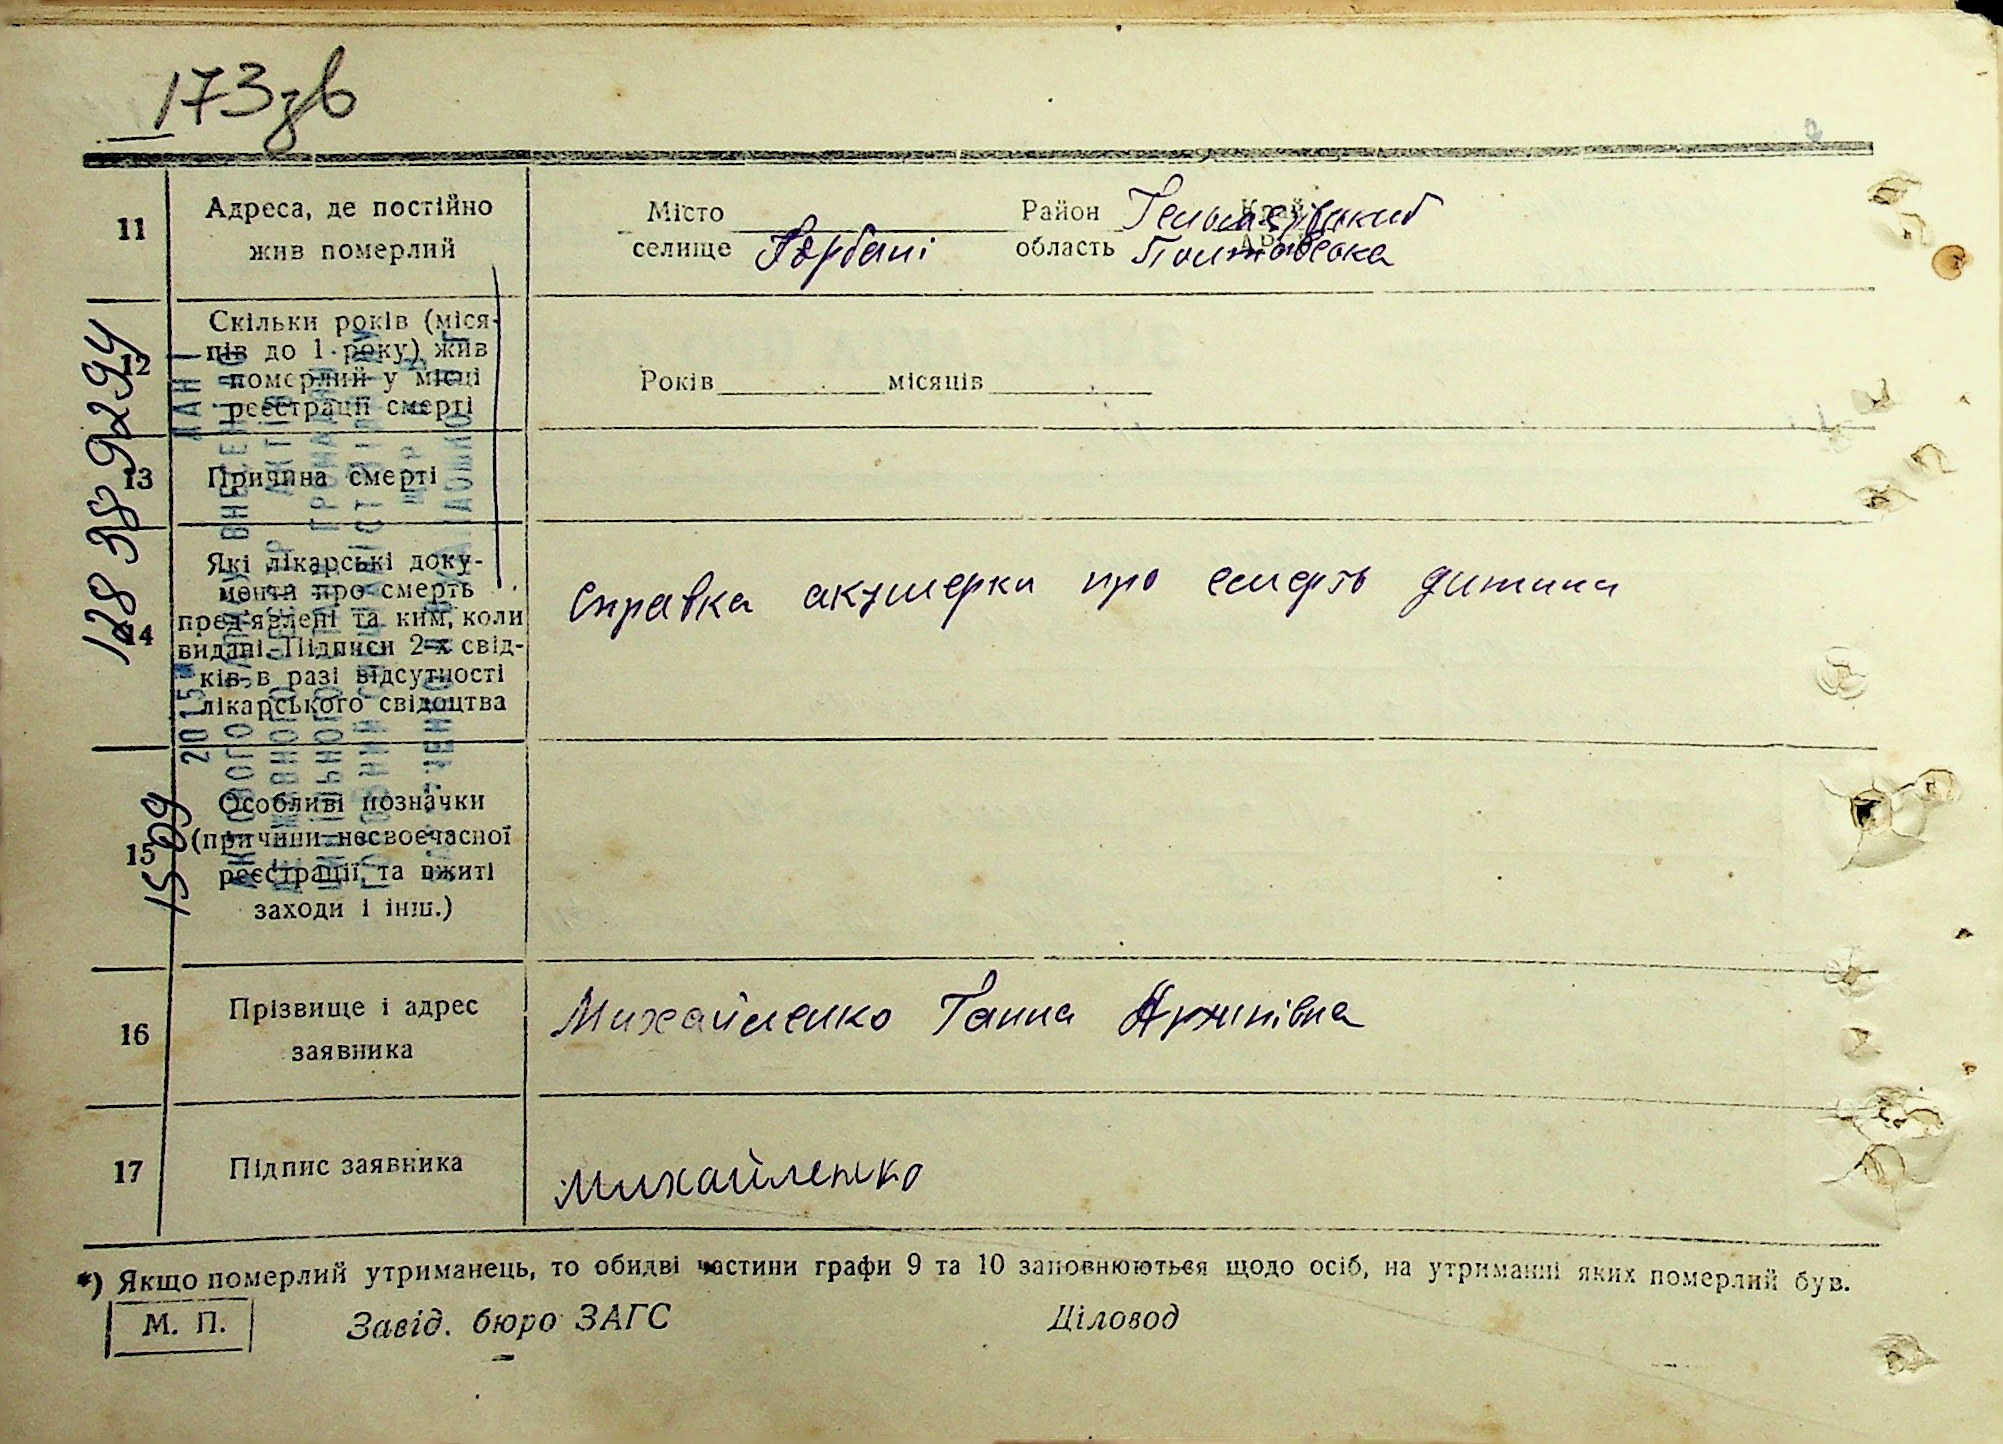 173зв
11
Адреса, де постійно
жив померлий
Місто
селище Горбані
Район Гельмязівський Край
область Полтавська АРСР
12
Скільки років (міся-
ців до 1 року) жив
померлий у місці
реєстрації смерті
Років місяців
13
Причина смерті
14
Які лікарські доку-
менти про смерть
пред'явлені та ким, коли
видані. Підписи 2-х свід-
ків в разі відсутності
лікарського свідоцтва
Справка акушерки про смерть дитини
15
Особливі позначки
(причини несвоєчасної
реєстрації та вжиті
заходи і інш.)
16
Прізвище і адрес
заявника
Михайленко Ганна Архипівна
17
Підпис заявника
Михайленко
*) Якщо померлий утриманець, то обидві частини графи 9 та 10 заповнюються щодо осіб, на утриманні яких померлий був.
М. П.
Завід. бюро ЗАГС
Діловод
15 09 2015
128 38 9294